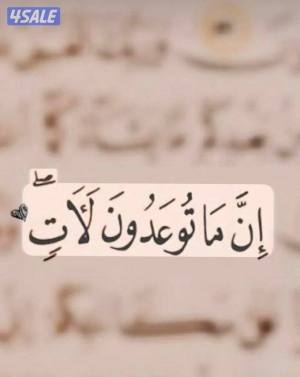 4SALE
إِنَّ مَا تُوعَدُونَ لَأَتٍۖ